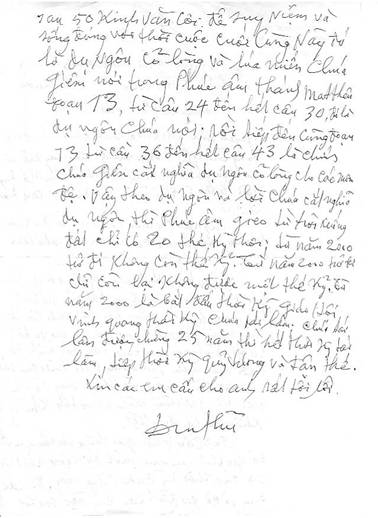 ran 50 Kinh Văn Côi. để suy niệm và
sống đúng với thời cuộc cuối cùng này đó
là dụ ngôn cỏ lùng và lúa miến Chúa
Giêsu nói trong Phúc âm, thánh Matthêu
đoạn 13, từ câu 24 đến hết câu 30, đó là
dụ ngôn Chúa nói. rồi tiếp đến cũng đoạn
13 từ câu 36 đến hết câu 43 là chính
Chúa Giêsu cắt nghĩa dụ ngôn cỏ lùng cho các môn
đệ. Vậy theo dụ ngôn và lời Chúa cắt nghĩa
dụ ngôn thì Phúc âm gieo từ trời xuống
đất chỉ có 20 thế kỷ thôi; từ năm 2000
trở đi không còn thế kỷ. Từ năm 2000 trở đi
chỉ còn lại không được một thế kỷ. từ
năm 2000 là bắt đầu thời kỳ Giáo Hội
vinh quang thời kỳ Chúa lại lâm. Chúa lại
lâm được chừng 25 năm thì hết thời kỳ lại
lâm, tiếp thời kỳ và tân thế.
Xin các em cầu cho anh, rất tội lỗi.